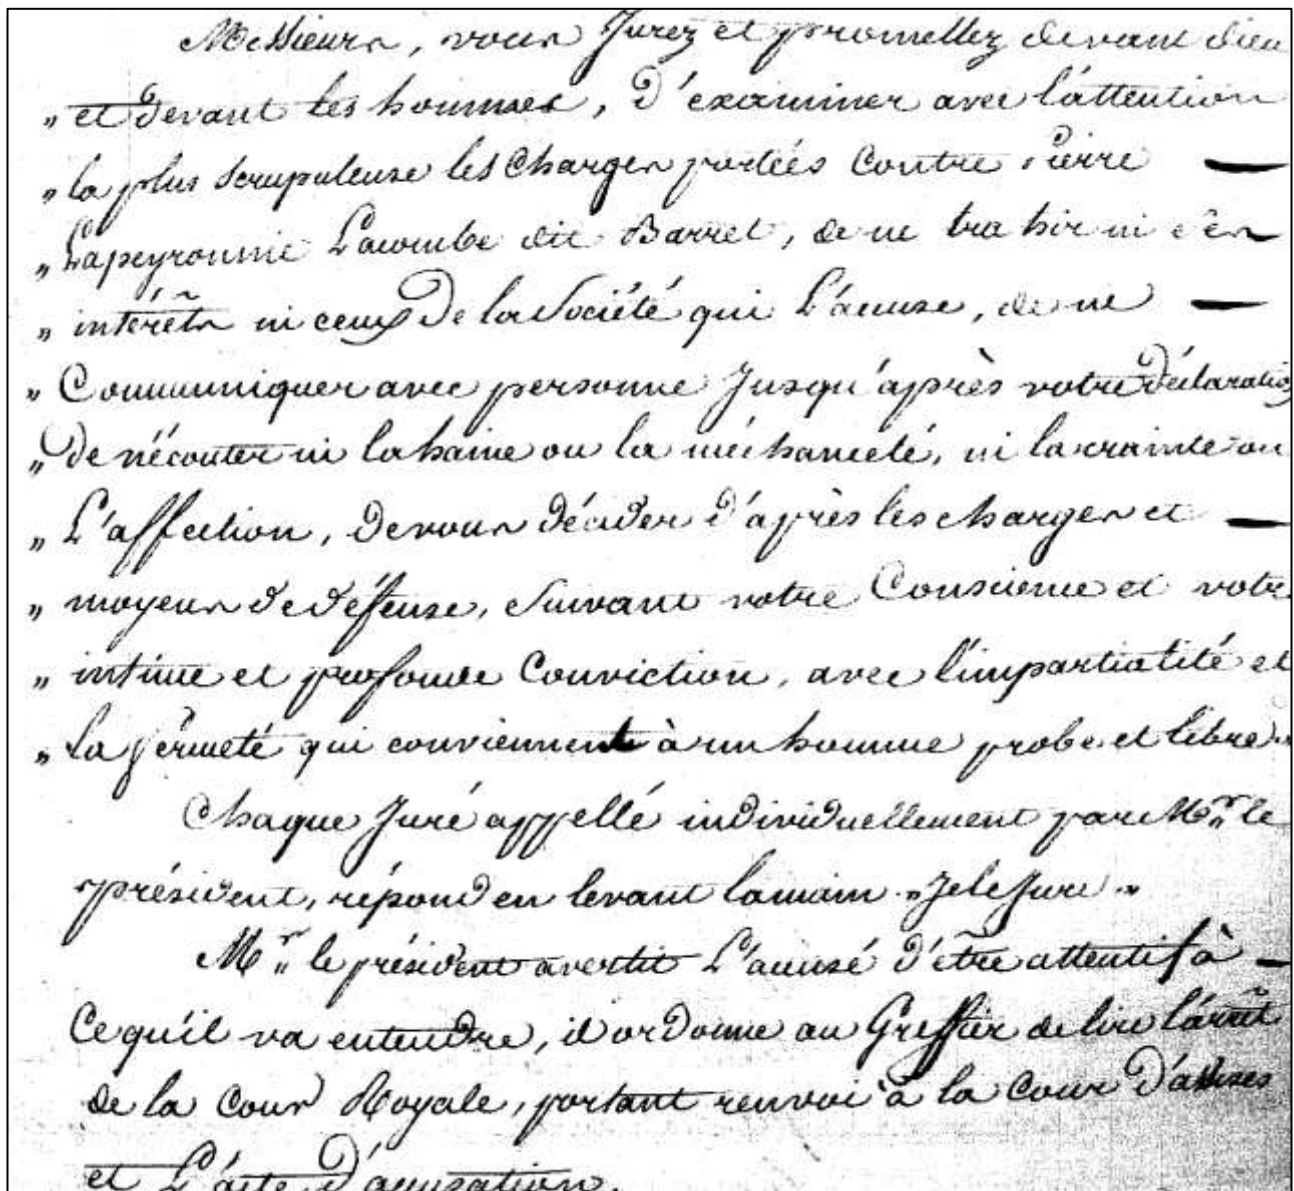 Messieurs, vous Jurez et promettez devant dieu
„ et devant les hommes, d'examiner avec l'attention
„ la plus scrupuleuse les charges portées contre Pierre —
„ Lapeyronnie Lacombe dit Barret, de ne trahir ni ses
„ intérêts ni ceux de la Société qui L'accuse, de ne —
„ Communiquer avec personne Jusqu'après votre déclaration
„ De n'écouter ni la haine ou la méchanceté, ni la crainte ou
„ L'affection, de vous décider d'après les charges et —
„ moyens de défense, Suivant votre Conscience et votre
„ intime et profonde Conviction, avec l'impartialité et
„ La fermeté qui conviennent à un homme probe et libre.„
Chaque Juré appellé individuellement par Mr. le
président, répond en levant la main „Je le Jure.„
Mr. le président avertit L'accusé d'être attentif à —
Ce qu'il va entendre, il ordonne au Greffier de lire l'arrêt
de la Cour Royale, portant renvoi à la Cour d'assises
et L'acte D'accusation.